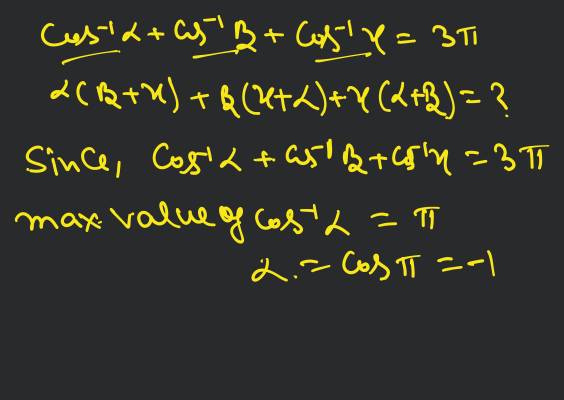 Cos⁻¹α + Cos⁻¹β + Cos⁻¹γ = 3π
α(β+γ) + β(γ+α) + γ(α+β) = ?
Since, Cos⁻¹α + Cos⁻¹β + Cos⁻¹γ = 3π
max value of Cos⁻¹α = π
α = Cos π = -1